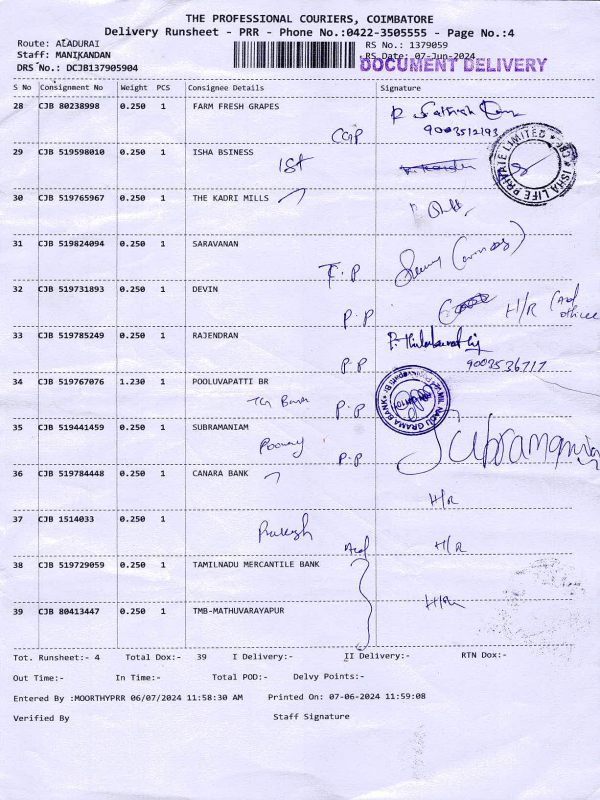 THE PROFESSIONAL COURIERS, COIMBATORE
Delivery Runsheet - PRR - Phone No.:0422-3505555 - Page No.:4
Route: ALADURAI
RS No.: 1379059
Staff: MANIKANDAN
RS Date: 07-Jun-2024
DRS No.: DCJB137905904
DOCUMENT DELIVERY
S No Consignment No Weight PCS Consignee Details Signature
28 CJB 80238998 0.250 1 FARM FRESH GRAPES
9003512193
29 CJB 519598010 0.250 1 ISHA BSINESS
ISHA LIFE PRIVATE LIMITED
30 CJB 519765967 0.250 1 THE KADRI MILLS
31 CJB 519824094 0.250 1 SARAVANAN
32 CJB 519731893 0.250 1 DEVIN
P.P H/R
33 CJB 519785249 0.250 1 RAJENDRAN
P.P 9003536717
34 CJB 519767076 1.230 1 POOLUVAPATTI BR
P.P
35 CJB 519441459 0.250 1 SUBRAMANIAM
P.P Subramaniam
36 CJB 519784448 0.250 1 CANARA BANK
H/R
37 CJB 1514033 0.250 1
H/R
38 CJB 519729059 0.250 1 TAMILNADU MERCANTILE BANK
39 CJB 80413447 0.250 1 TMB-MATHUVARAYAPUR
H/R
Tot. Runsheet:- 4 Total Dox:- 39 I Delivery:- II Delivery:- RTN Dox:-
Out Time:- In Time:- Total POD:- Delvy Points:-
Entered By :MOORTHYPRR 06/07/2024 11:58:30 AM Printed On: 07-06-2024 11:59:08
Verified By Staff Signature